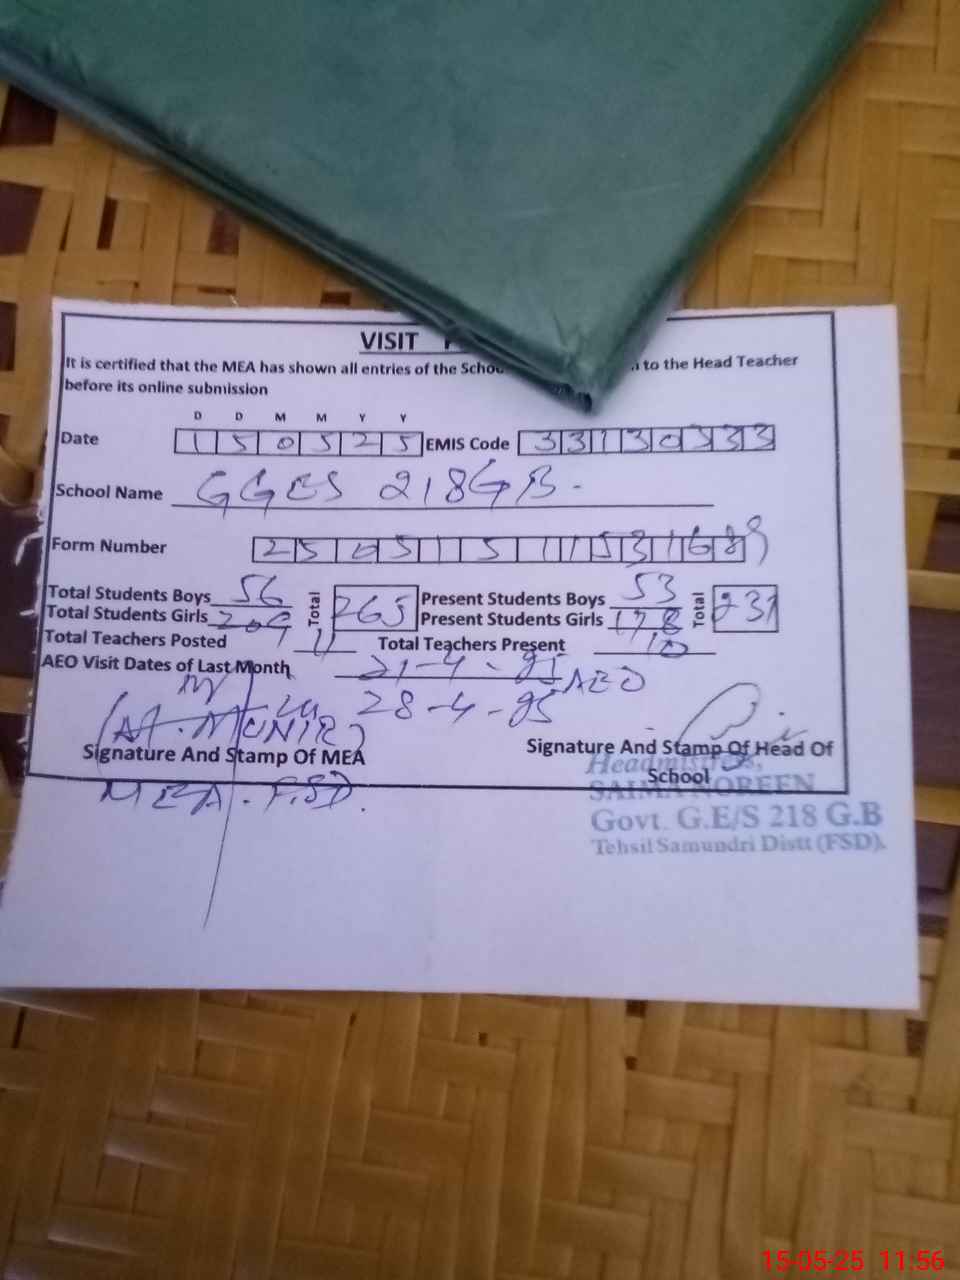 VISIT
It is certified that the MEA has shown all entries of the to the Head Teacher
before its online submission
D D M M Y Y
Date 1 5 0 5 2 5 EMIS Code 3 3 1 3 0 3 3 3
School Name GGES 218GB.
Form Number 2 5 0 5 1 5 1 1 5 3 1 6 8 9
Total Students Boys 56 Total 265 Present Students Boys 53 Total 231
Total Students Girls 209 Present Students Girls 178
Total Teachers Posted 11 Total Teachers Present 10
AEO Visit Dates of Last Month 21-4-25 AEO
28-4-25
Signature And Stamp Of MEA Signature And Stamp Of Head Of
School
MEA. FSD.
Headmistress,
SAIMA NOREEN
Govt. G.E/S 218 G.B
Tehsil Samundri Distt (FSD).
15-05-25 11:56